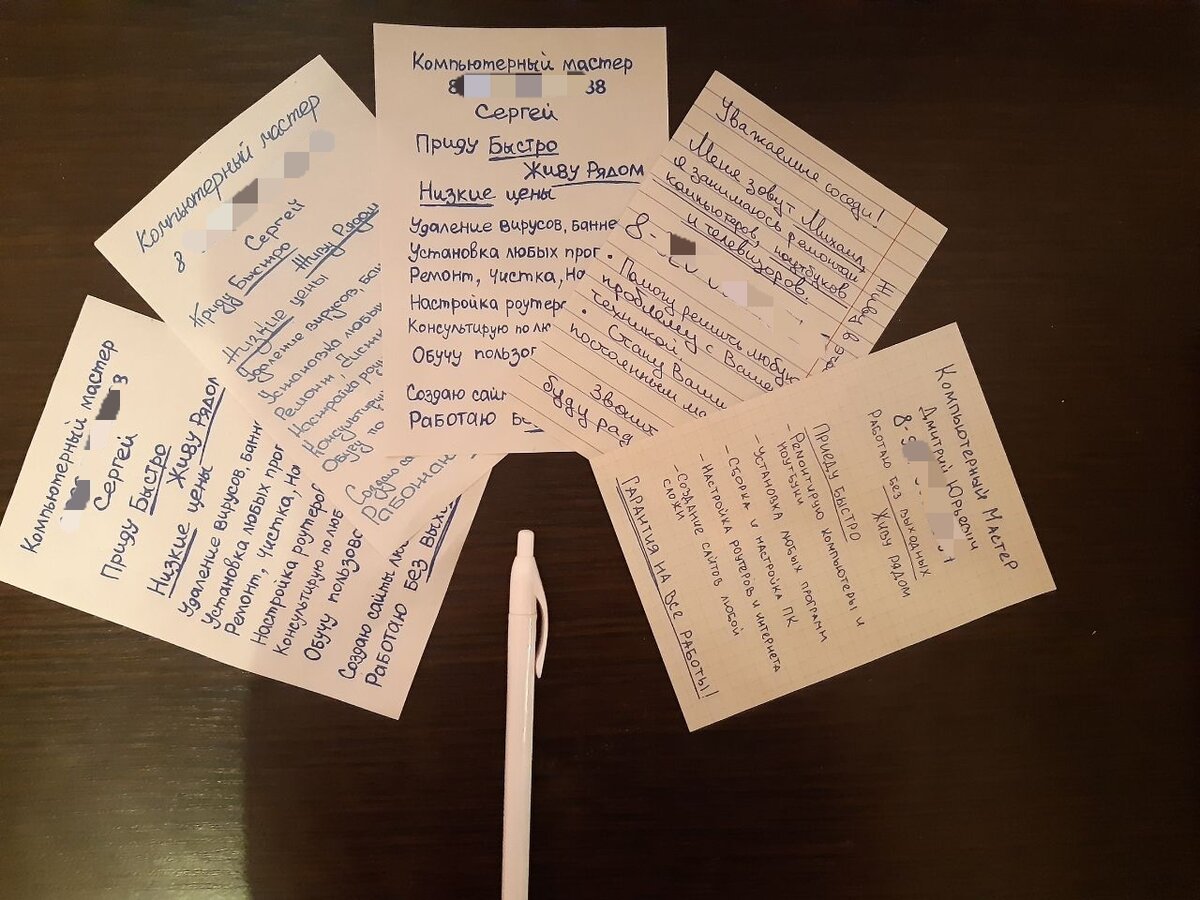 Компьютерный мастер
3
Сергей
Приду Быстро
Живу Рядом
Низкие цены
Удаление вирусов, банн
Установка любых прог
Ремонт, Чистка, На
Настройка роутеров
Консультирую по люб
Обучу пользова
Создаю сайты лю
Работаю Без Выхо
Компьютерный мастер
8
Сергей
Приду Быстро
Живу Рядом
Низкие цены
Удаление вирусов, бан
Установка любы
Ремонт Чистк
Настройка роу
Консультиру
Обучу по
Создаю са
Компьютерный мастер
8 38
Сергей
Приду Быстро
Живу Рядом
Низкие цены
Удаление вирусов, банне
Установка любых прог
Ремонт, Чистка, На
Настройка роутеро
Консультирую по лю
Обучу пользов
Создаю сайт
Работаю Бе
Уважаемые соседи!
Меня зовут Михаил,
я занимаюсь ремонтом
компьютеров, ноутбуков
и телевизоров.
8-
• Помогу решить любую
проблему с Вашей
техникой.
• Стану Вашим
постоянным ма
Звонит
буду рад
Живу в
Компьютерный Мастер
Дмитрий Юрьевич
8-9 1
Работаю без выходных
Живу рядом
Приеду быстро
- Ремонтирую компьютеры и
ноутбуки
- Установка любых программ
- Сборка и настройка ПК
- Настройка роутеров и интернета
- Создание сайтов любой
сложн
Гарантия на все работы!